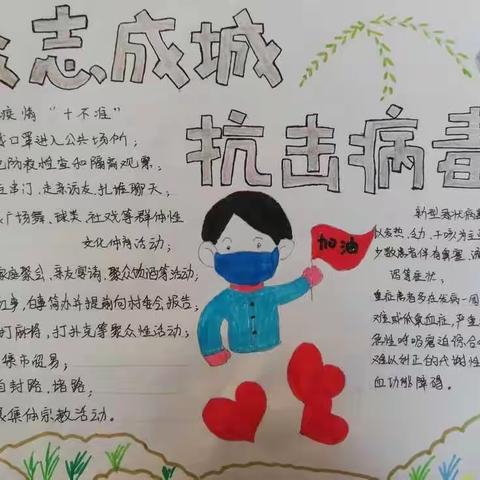 众志成城
抗击病毒
疫情“十不准”
口罩进入公共场所;
防疫检查和隔离观察;
串门、走亲访友、扎堆聊天;
广场舞、球类、社戏等群体性
文化体育活动;
家庭聚会、亲友宴请、聚众饮酒等活动;
事,白事简办并提前向村委会报告;
打麻将、打扑克等聚众性活动;
集市贸易;
自封路、堵路;
集体宗教活动。
加油
新型冠状病毒
以发热、乏力、干咳为主
少数患者伴有鼻塞、流
涕等症状。
重症患者多在发病一周
难或低氧血症,严重
急性呼吸窘迫综合
难以纠正的代谢性
血功能障碍。